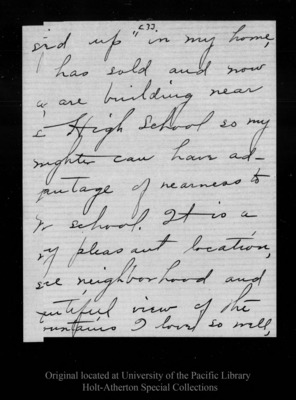 [3]
si'd up" in my home,
has sold and now
are building near
High School so my
ughter can have ad-
ntage of nearness to
school. It is a
ry pleasant location,
ice neighborhood and
autiful view of the
ountains I loved so well,
Original located at University of the Pacific Library
Holt-Atherton Special Collections